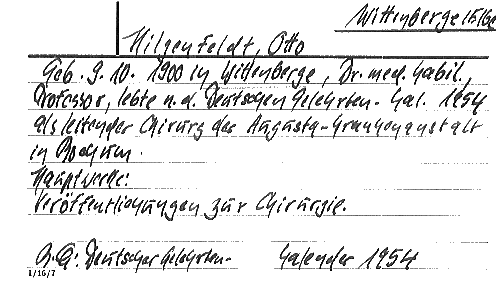 Wittenberge
Hilgenfeldt, Otto
Geb. 9.10. 1900 in Wittenberge, Dr. med. habil.,
Professor, lebte n. d. Deutschen Gelehrten-Kal. 1954
als leitender Chirurg der Augusta-Krankenanstalt
in Bochum.
Hauptwerke:
Veröffentlichungen zur Chirurgie.
Deutscher Gelehrten- Kalender 1954
1/16/7